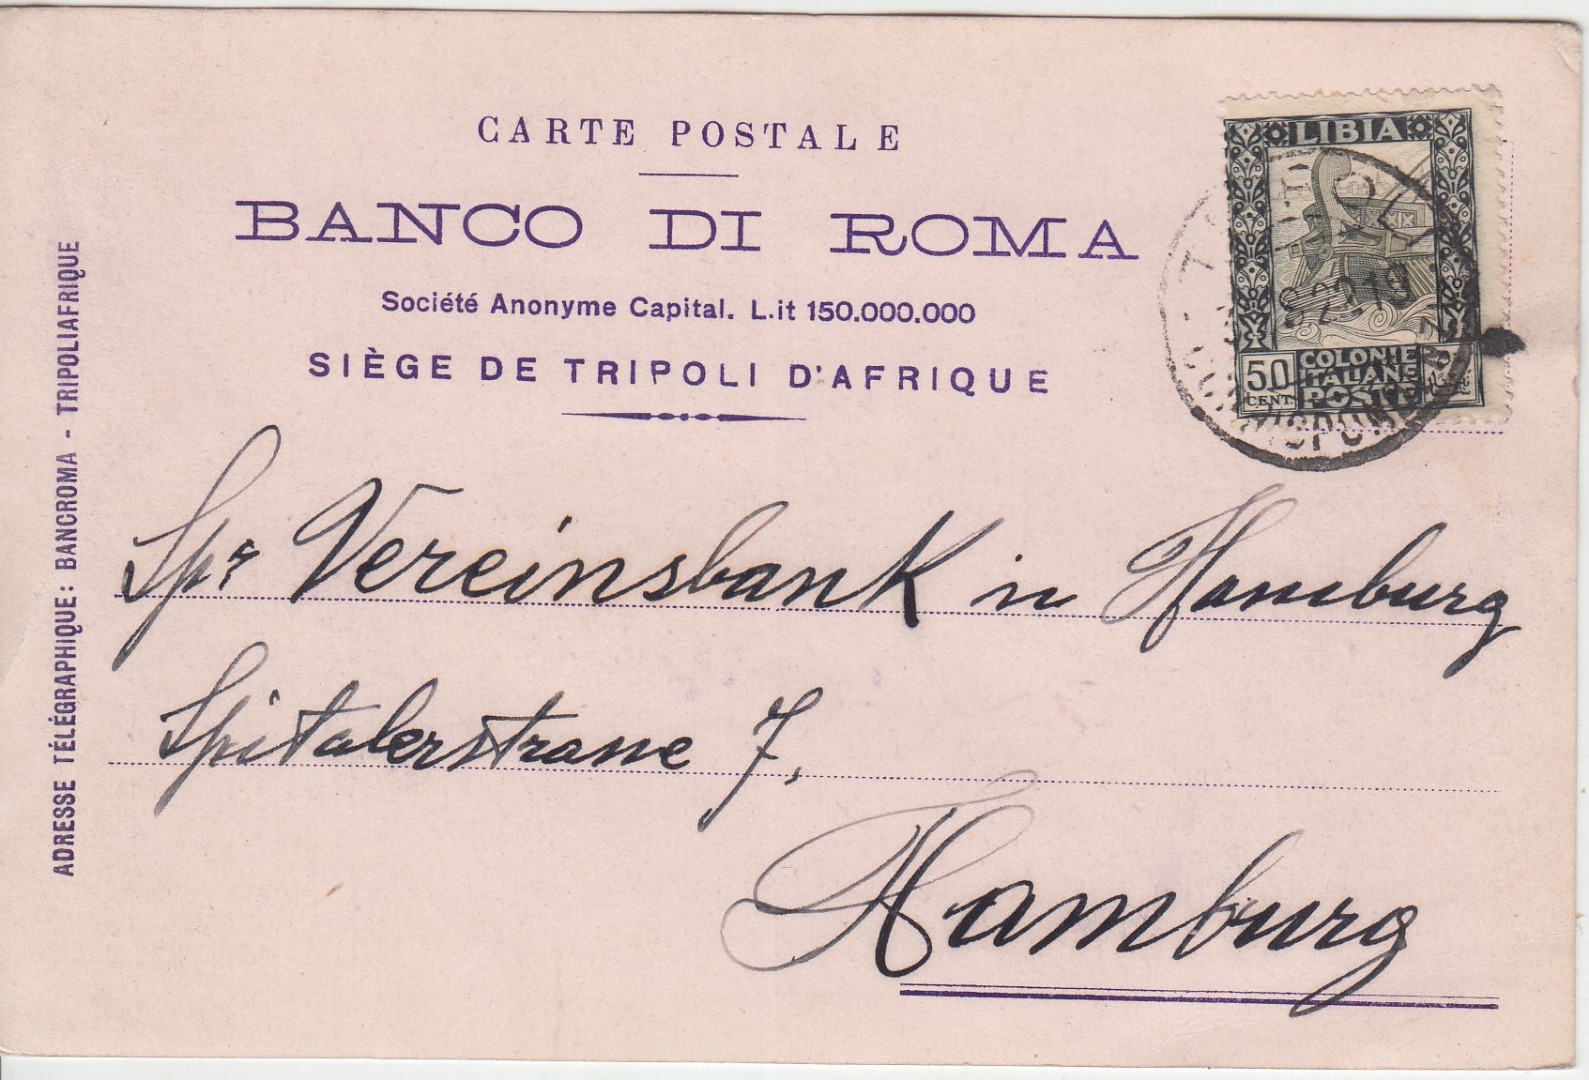 CARTE POSTALE
BANCO DI ROMA
Société Anonyme Capital. L.it 150.000.000
SIÈGE DE TRIPOLI D'AFRIQUE
ADRESSE TÉLÉGRAPHIQUE: BANCROMA - TRIPOLIAFRIQUE
LIBIA
50
CENT.
COLONIE
ITALIANE
POSTE
Vereinsbank in Hamburg
Spitalerstrasse 7.
Hamburg